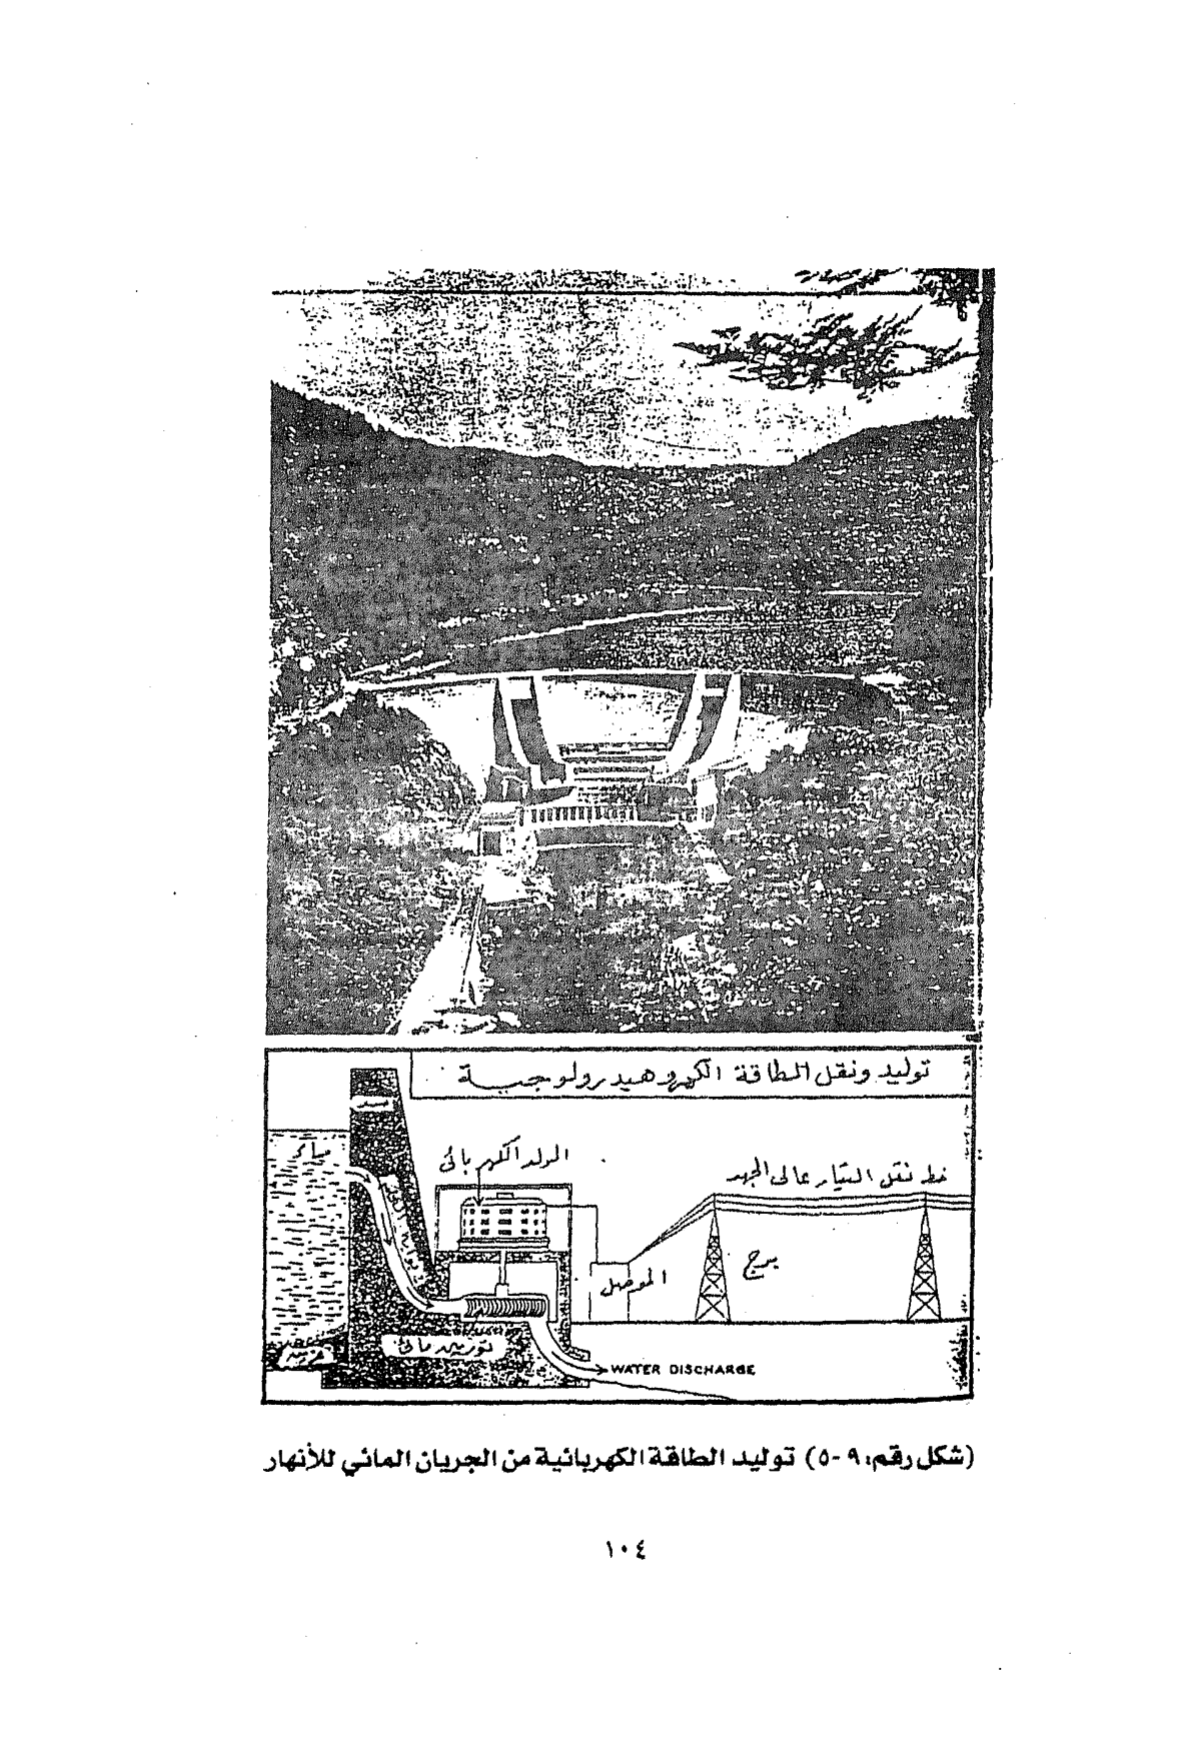 توليد ونقل الطاقة الكهروهيدرولوجية
سد
ماء
المولد الكهربائى
خط نقل التيار عالى الجهد
برج
الموصل
توربين مائى
WATER DISCHARGE
(شكل رقم: ٩-٥) توليد الطاقة الكهربائية من الجريان المائي للأنهار
١٠٤